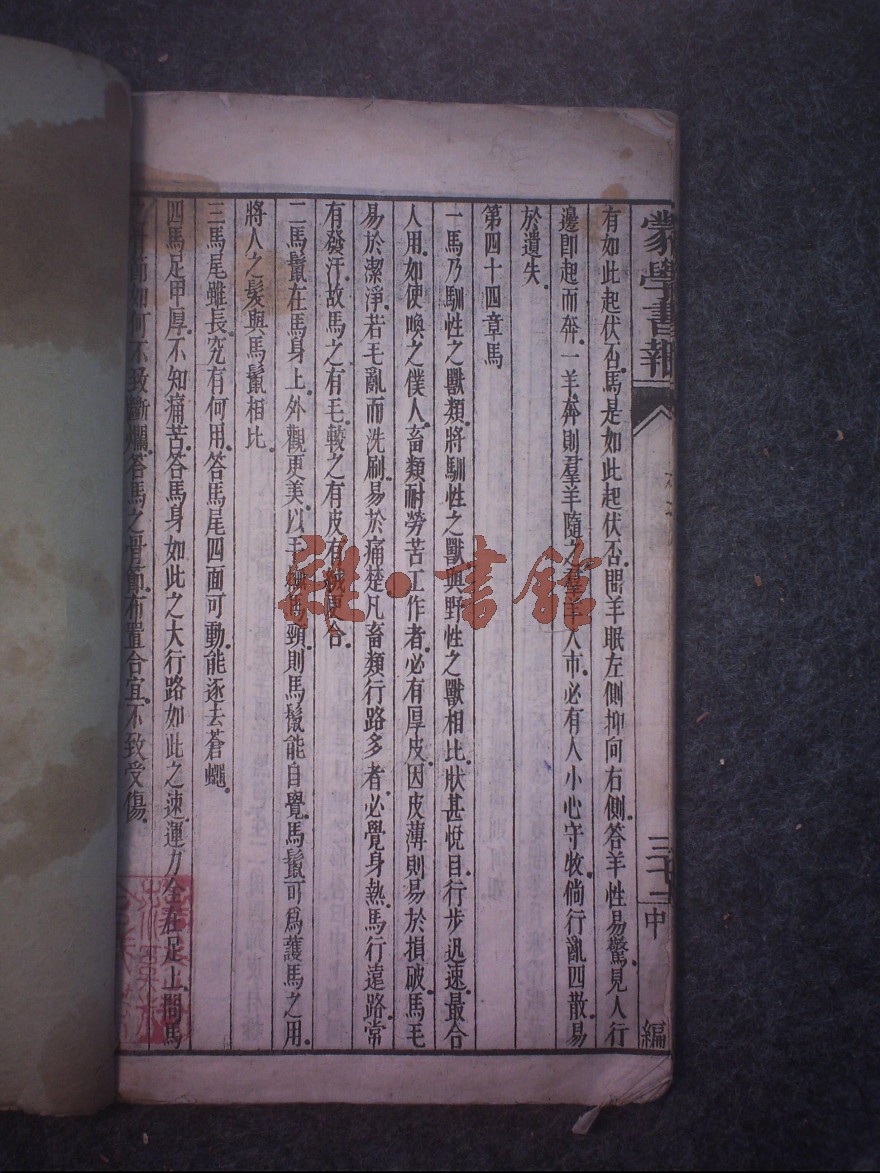 蒙學書報
中
編
有如此起伏否馬是如此起伏否問羊眠左側抑向右側答羊性易驚見人行
邊卽起而奔一羊奔則羣羊隨之羣羊入市必有人小心守牧倘行亂四散易
於遺失
第四十四章馬
一馬乃馴性之獸類將馴性之獸與野性之獸相比狀甚悅目行步迅速最合
人用如使喚之僕人畜類耐勞苦工作者必有厚皮因皮薄則易於損破馬毛
易於潔淨若毛亂而洗刷易於痛楚凡畜類行路多者必覺身熱馬行遠路常
有發汗故馬之有毛較之有皮有更合
二馬鬣在馬身上外觀更美以手馬頸則馬鬣能自覺馬鬣可爲護馬之用
將人之髮與馬鬣相比
三馬尾雖長究有何用答馬尾四面可動能逐去蒼蠅
四馬足甲厚不知痛苦答馬身如此之大行路如此之速運力全在足上問馬
節如何不致斷爛答馬之骨節布置合宜不致受傷
雜·書館